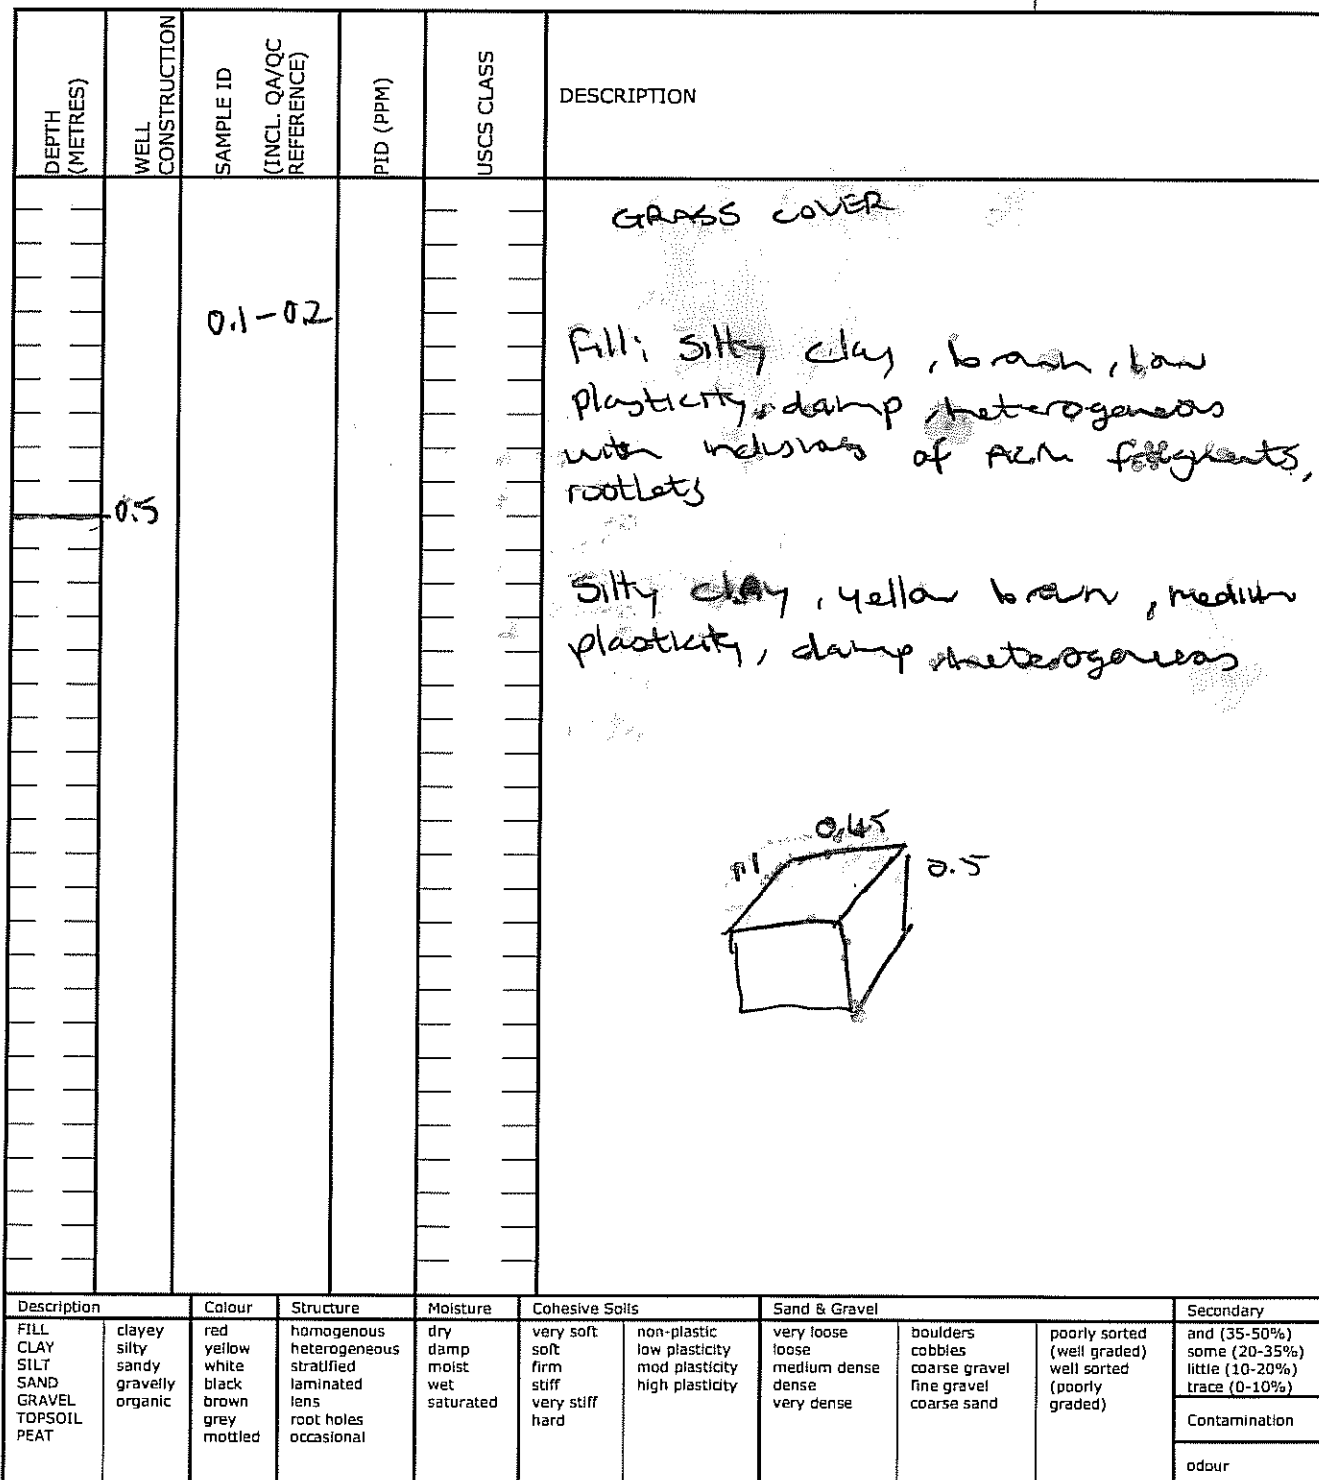 DEPTH (METRES)
WELL CONSTRUCTION
SAMPLE ID (INCL. QA/QC REFERENCE)
PID (PPM)
USCS CLASS
DESCRIPTION
GRASS COVER
0.1-0.2
Fill; Silty clay, brown, low
plasticity, damp, heterogeneous
with inclusions of ACM fragments,
rootlets
0.5
Silty clay, yellow brown, medium
plasticity, damp, heterogeneous
0.45
0.5
Description
FILL
CLAY
SILT
SAND
GRAVEL
TOPSOIL
PEAT
clayey
silty
sandy
gravelly
organic
Colour
red
yellow
white
black
brown
grey
mottled
Structure
homogenous
heterogeneous
stratified
laminated
lens
root holes
occasional
Moisture
dry
damp
moist
wet
saturated
Cohesive Soils
very soft
soft
firm
stiff
very stiff
hard
non-plastic
low plasticity
mod plasticity
high plasticity
Sand & Gravel
very loose
loose
medium dense
dense
very dense
boulders
cobbles
coarse gravel
fine gravel
coarse sand
poorly sorted
(well graded)
well sorted
(poorly
graded)
Secondary
and (35-50%)
some (20-35%)
little (10-20%)
trace (0-10%)
Contamination
odour